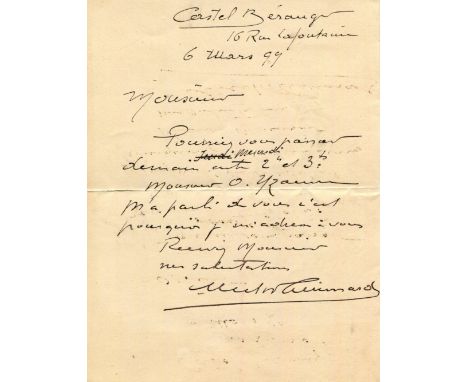 Castel Béranger
16 Rue Lafontaine
6 Mars 99
Monsieur
Pourriez vous passer
Jeudi Mercredi
demain entre 2h et 3h
Monsieur O.
M a parlé de vous c'est
pourquoi j' m'adresse à vous
Recevez Monsieur
mes salutations
Hector Guimard